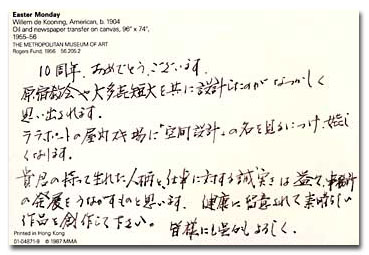 Easter Monday
Willem de Kooning, American, b. 1904
Oil and newspaper transfer on canvas, 96" x 74",
1955–56
THE METROPOLITAN MUSEUM OF ART
Rogers Fund, 1956 56.205.2
10周年、おめでとうございます。
原宿教会や大多喜短大を共に設計したのがなつかしく
思い出されます。
ララポートの屋灯に「空間設計」の名を見るにつけ、嬉し
くなります。
貴君の持って生れた人柄と仕事に対する誠実さは益々、事務所
の発展をうながすものと思います。健康に留意されて素晴らしい
作品を創作して下さい。皆様にも宜しくよろしく。
Printed in Hong Kong
01-04871-9 © 1987 MMA